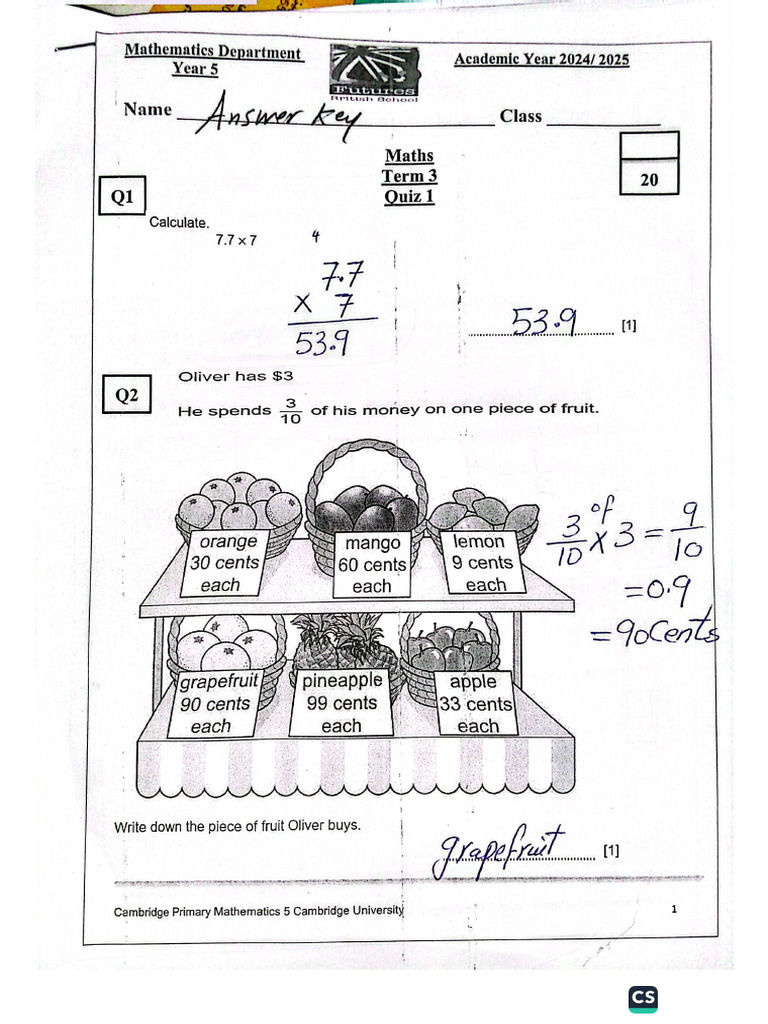 Mathematics Department
Year 5
Futures
British School
Academic Year 2024/ 2025
Name Answer Key Class
Maths
Term 3
Quiz 1
20
Q1
Calculate.
7.7 × 7
4
7.7
X 7
53.9
53.9 [1]
Q2
Oliver has $3
He spends 3/10 of his money on one piece of fruit.
orange
30 cents
each
mango
60 cents
each
lemon
9 cents
each
of
3/10 X 3 = 9/10
= 0.9
= 90 Cents
grapefruit
90 cents
each
pineapple
99 cents
each
apple
33 cents
each
Write down the piece of fruit Oliver buys.
grapefruit [1]
Cambridge Primary Mathematics 5 Cambridge University
1
CS